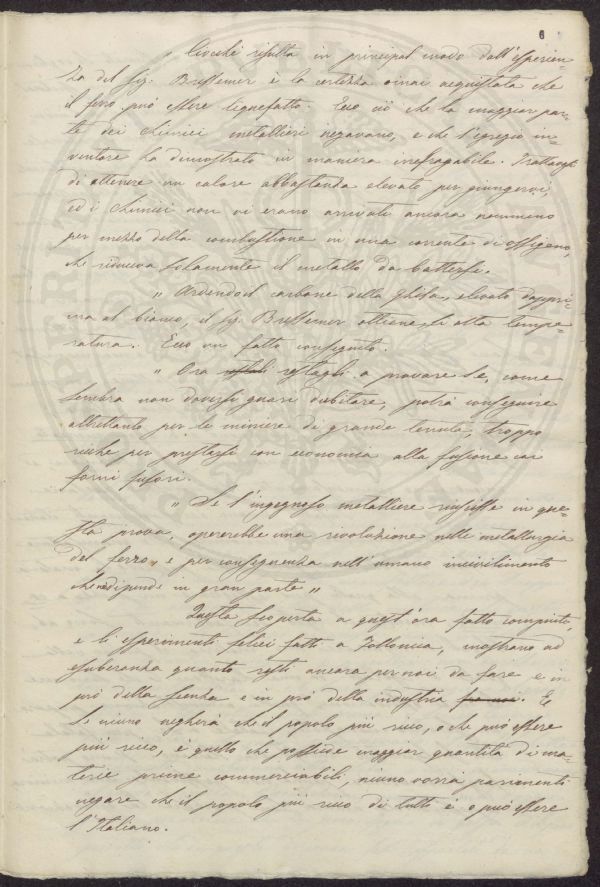 6
„ Ciocchè risulta in principal modo dall'esperien-
za del Sig. Bressemer è la certezza omai acquistata che
il ferro può essere liquefatto. Ecco ciò che la maggior par-
te dei chimici metallieri negavano, e che l'egregio in-
ventore ha dimostrato in maniera irrefragabile. Trattavasi
di ottenere un calore abbastanza elevato per giungervi,
ed i chimici non vi erano arrivati ancora nemmeno
per mezzo della combustione in una corrente di ossigeno,
che riduceva solamente il metallo da battersi.
„ Ardendo il carbone della Ghisa, elevato dappri-
ma al bianco, il Sig. Bressemer ottiene alta tempe-
ratura. Ecco un fatto conseguito.
„ Ora restagli a provare se, come
sembra non doversi guari dubitare, potrà conseguire
altrettanto per le miniere di grande tenuta, troppo
ricche per prestarsi con economia alla fusione coi
forni fusori.
„ Se l'ingegnoso metalliere riuscisse in que-
sta prova, opererebbe una rivoluzione nella metallurgia
del ferro, e per conseguenza nell'umano incivilimento
che ne dipende in gran parte „
Questa scoperta a quest'ora fatto compiuto,
e li esperimenti felici fatti a Follonica, mostrano ad
esuberanza quanto resti ancora per noi da fare e in
prò della scienza e in prò della industria fra noi. E
se niuno negherà che il popolo più ricco, o che può essere
più ricco, è quello che possiede maggior quantità di ma-
terie prime commerciabili, niuno vorrà parimenti
negare che il popolo più ricco di tutti è o può essere
l'Italiano.